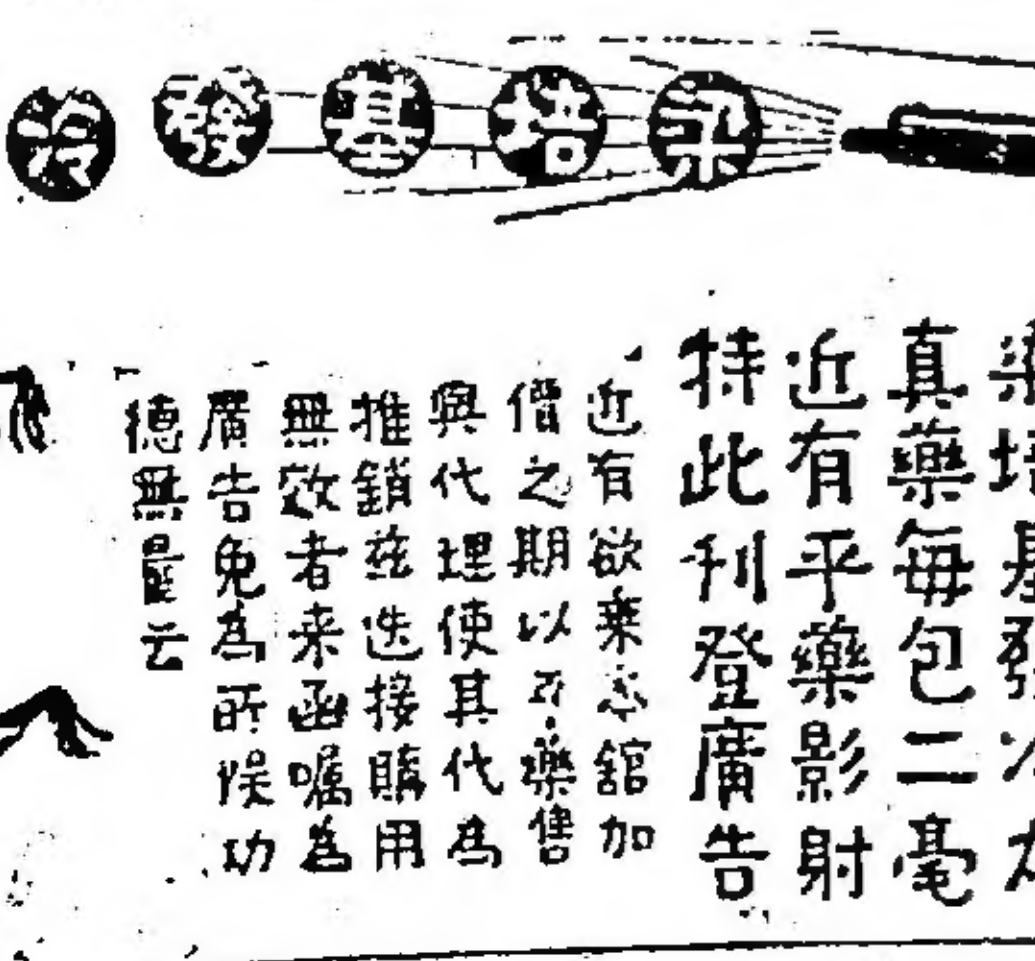 梁培基發冷
梁培基發冷丸
真藥每包二毫
近有平藥影射
特此刊登廣告
近有欲乘舘加
價之期以藥售
與代理使其代為
推銷茲迭接購用
無效者来函嘱為
廣告免為所悮功
德無量云